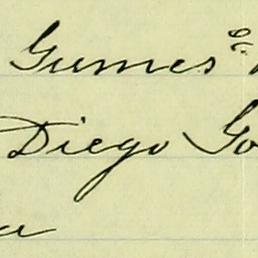 Gumesº
Diego Go
a